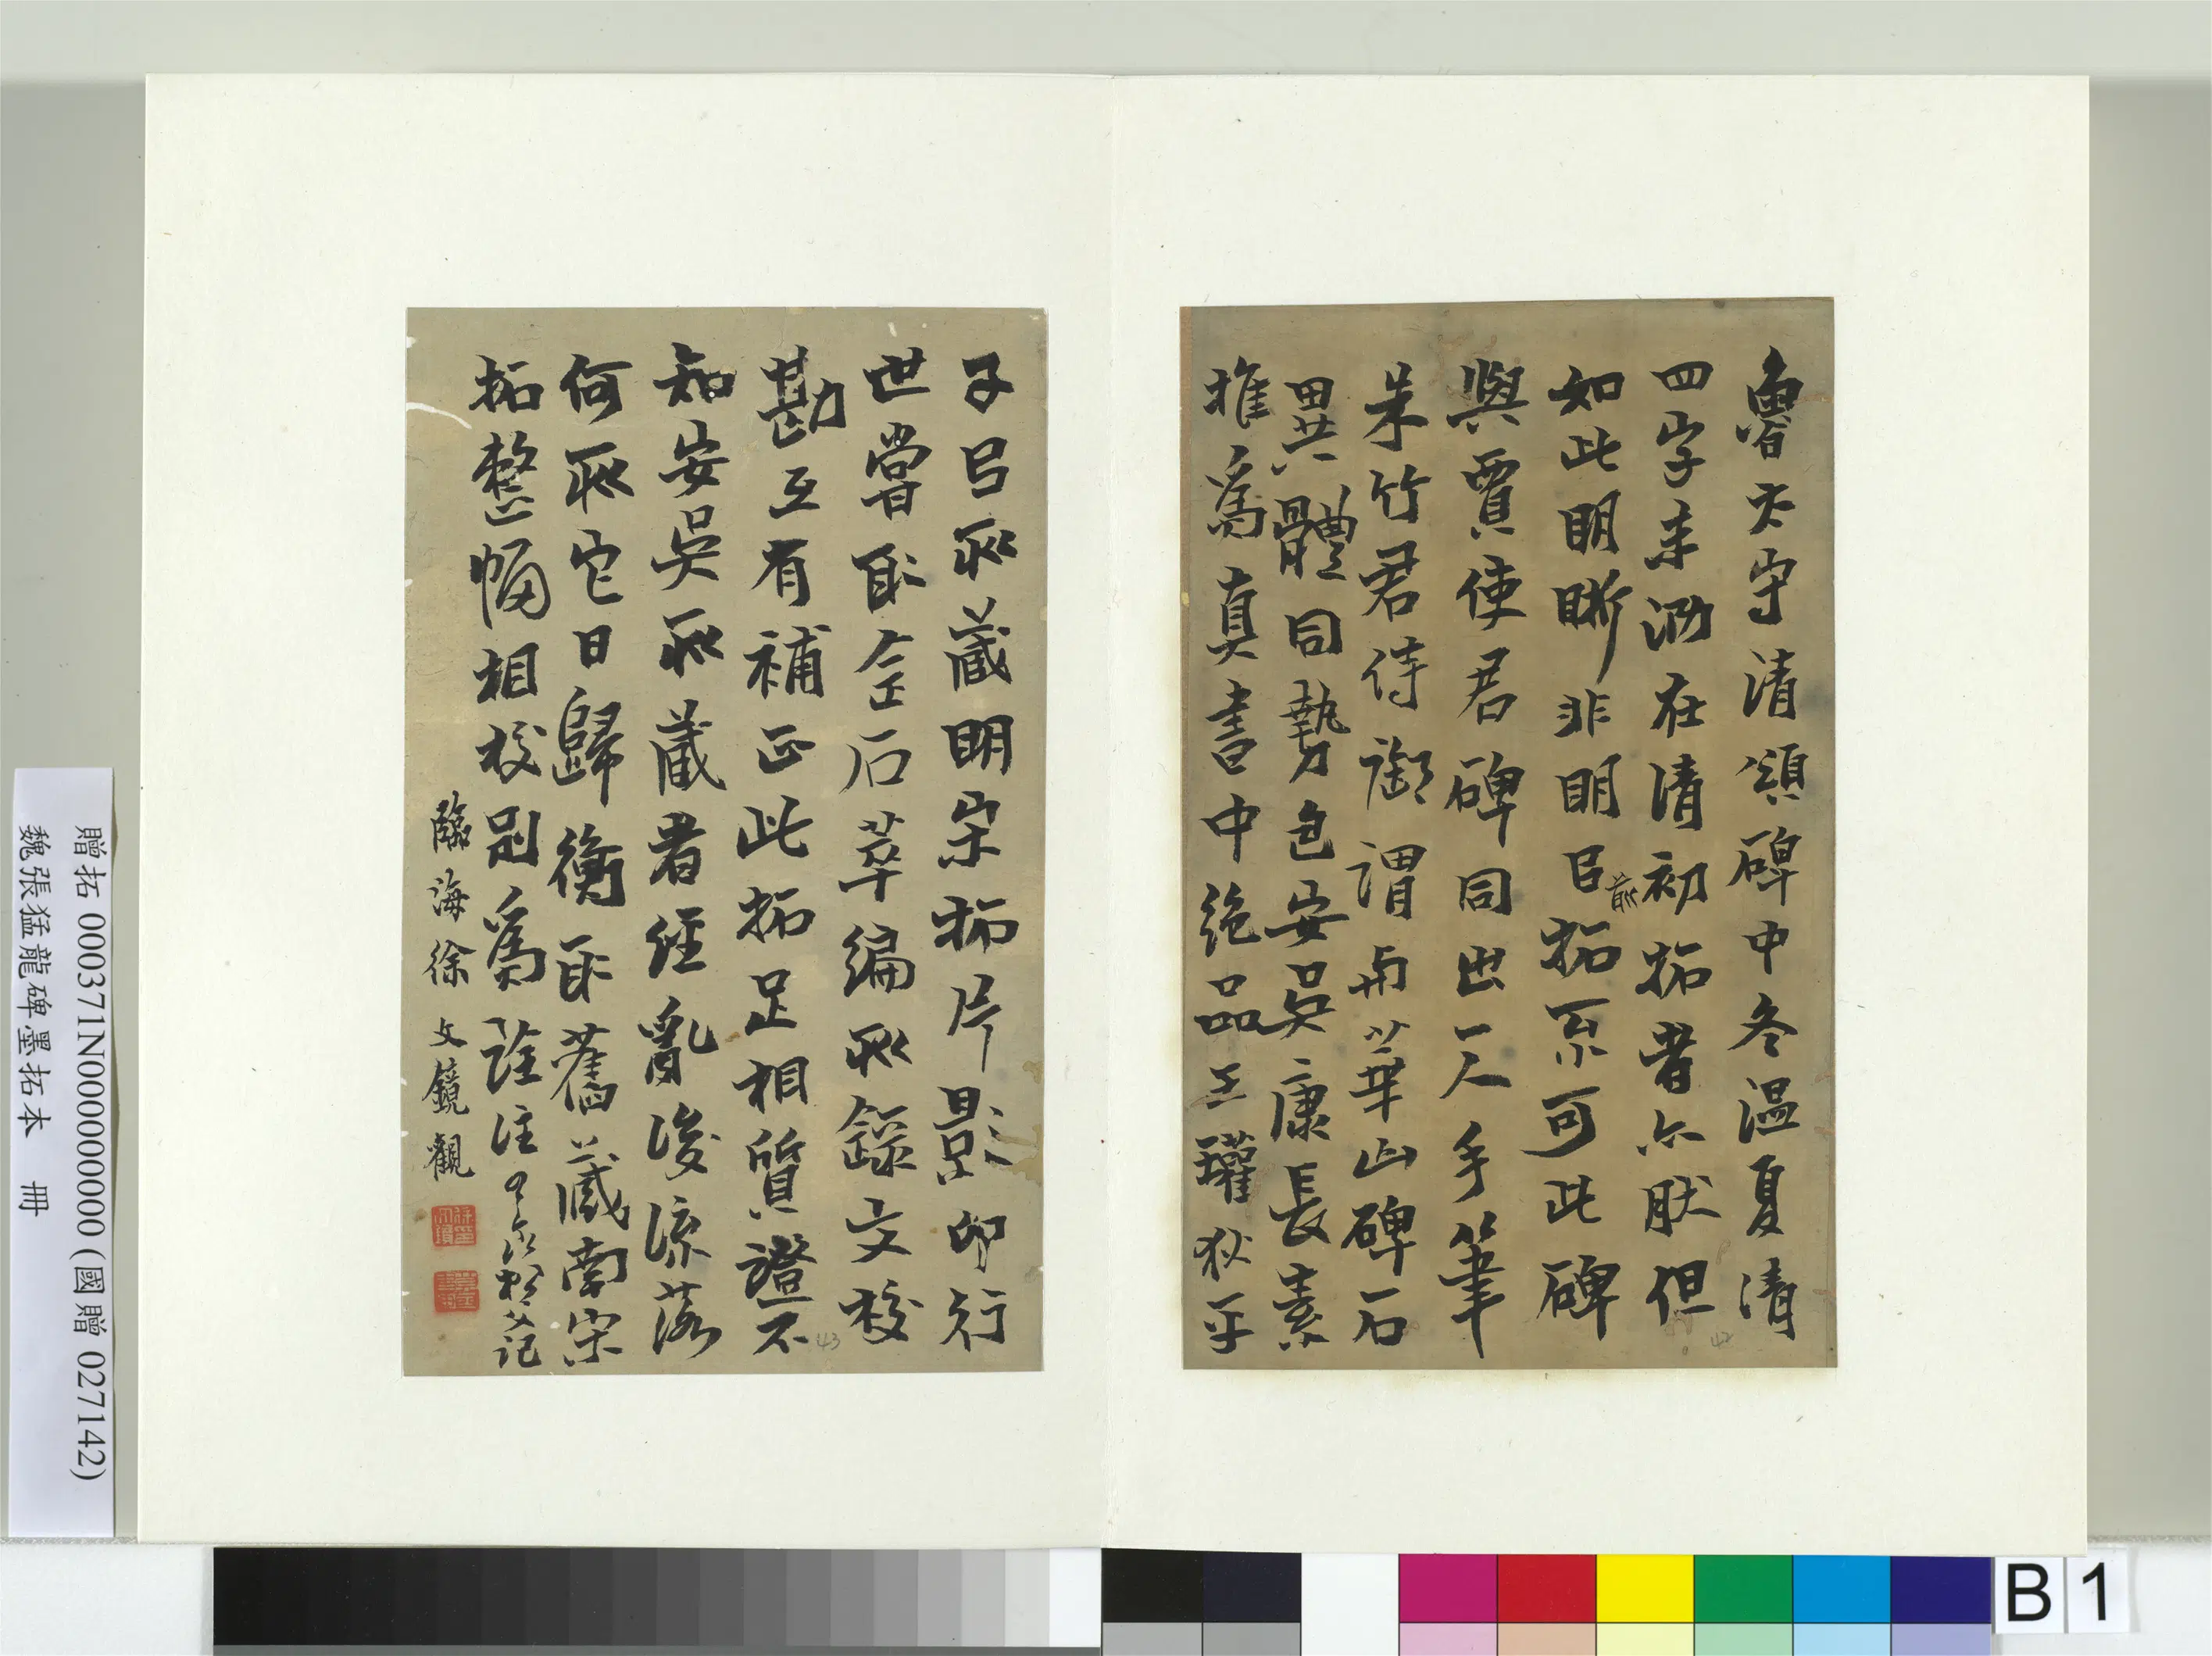 魯太守清頌碑中冬溫夏清
四字未泐在清初拓者亦肰但
如此明晰非明㠯前拓不可此碑
與賈使君碑同出一人手筆
朱竹君侍御謂與華山碑石
異體同勢包安吳康長素
推爲真書中絶品王瓘狄平
子㠯所藏明宋拓片影印行
世嘗取金石萃編所錄文校
勘互有補正此拓足相質證不
知安吳所藏者經亂後流落
何所它日歸衡取舊藏南宋
拓整幅相校別爲詮注
臨海徐文鏡觀
贈拓 000371N000000000 (國贈 027142)
魏張猛龍碑墨拓本 冊
43
42
B 1